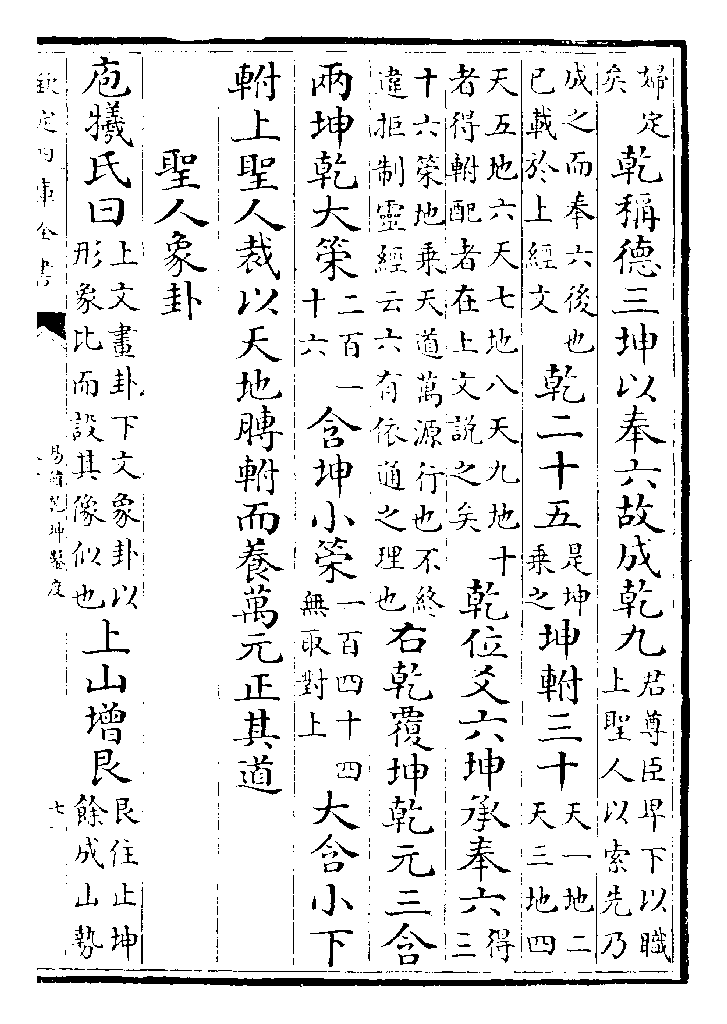 婦定矣乾稱德三坤以奉六故成乾九君尊臣卑下以職上聖人以索先乃
成之而奉六後也已載於上經文乾二十五是坤乘之坤軵三十天一地二天三地四
天五地六天七地八天九地十者得軵配者在上文説之矣乾位爻六坤承奉六得三
十六䇿地乘天道萬源行也不終違拒制靈經云六有依通之理也右乾覆坤乾元三含
兩坤乾大䇿二百一十六含坤小䇿一百四十四無取對上大含小下
軵上聖人裁以天地膞軵而養萬元正其道
聖人象卦
庖犧氏曰上文畫卦下文象卦以形象比而設其像似也上山增艮艮住止坤餘成山勢
欽定四庫全書
易緯乾坤鑿度
七